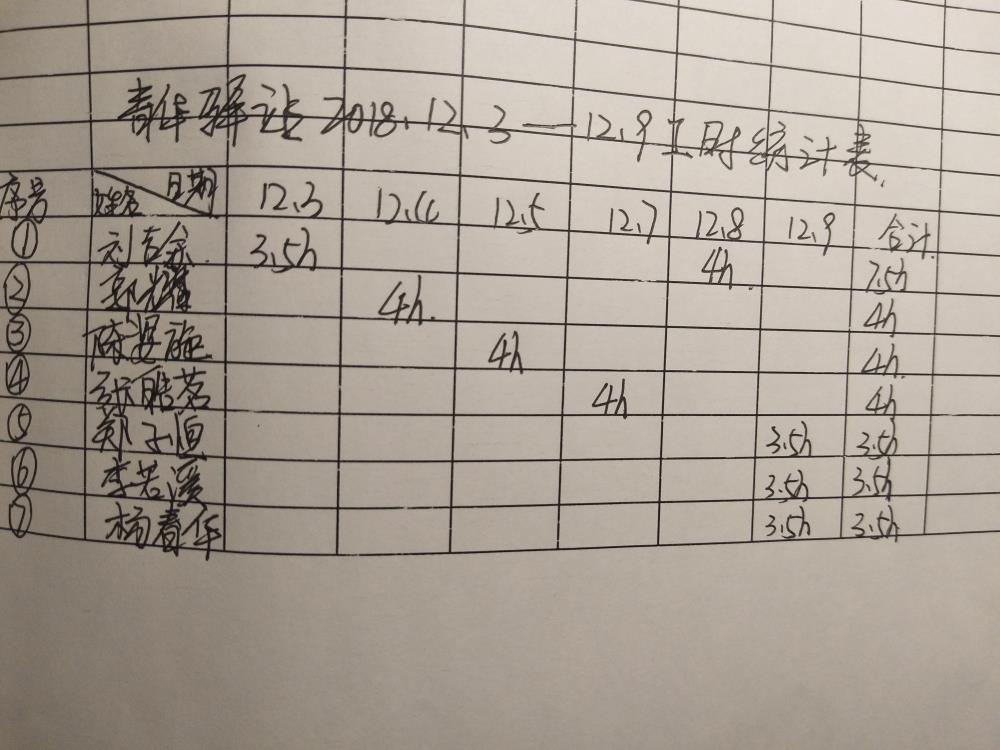 青年驿站2018.12.3—12.9工时统计表.
序号 姓名 日期 12.3 12.4 12.5 12.7 12.8 12.9 合计
① 刘吉余 3.5h 4h. 7.5h
② 郭耀 4h. 4h
③ 陈 4h 4h
④ 张皓茗 4h 4h
⑤ 郑子恒 3.5h 3.5h
⑥ 李若溪 3.5h 3.5h
⑦ 杨春华 3.5h 3.5h